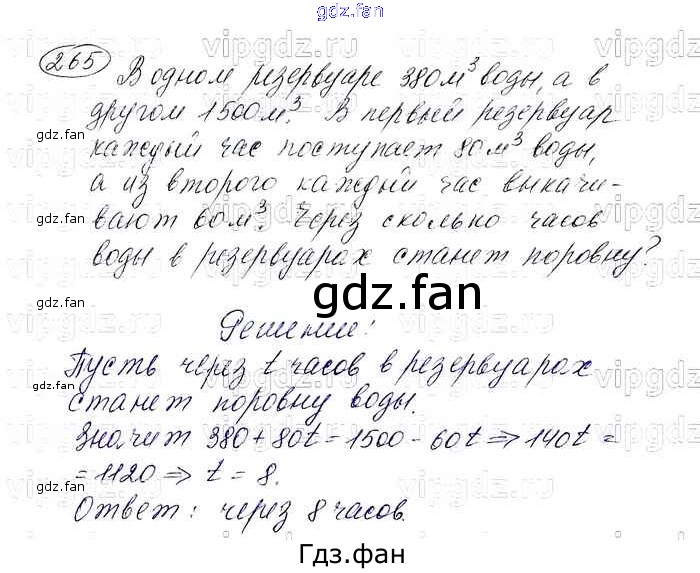 gdz.fan
265 В одном резервуаре 380м³ воды, а в
другом 1500м³. В первый резервуар
gdz.fan
каждый час поступает 80м³ воды,
а из второго каждый час выкачи-
gdz.fan
вают 60м³. Через сколько часов
воды в резервуарах станет поровну?
gdz.fan
gdz.fan
Решение:
Пусть через t часов в резервуарах
gdz.fan
станет поровну воды.
Значит 380 + 80t = 1500 - 60t => 140t =
= 1120 => t = 8.
gdz.fan
Ответ: через 8 часов.
Гдз.фан